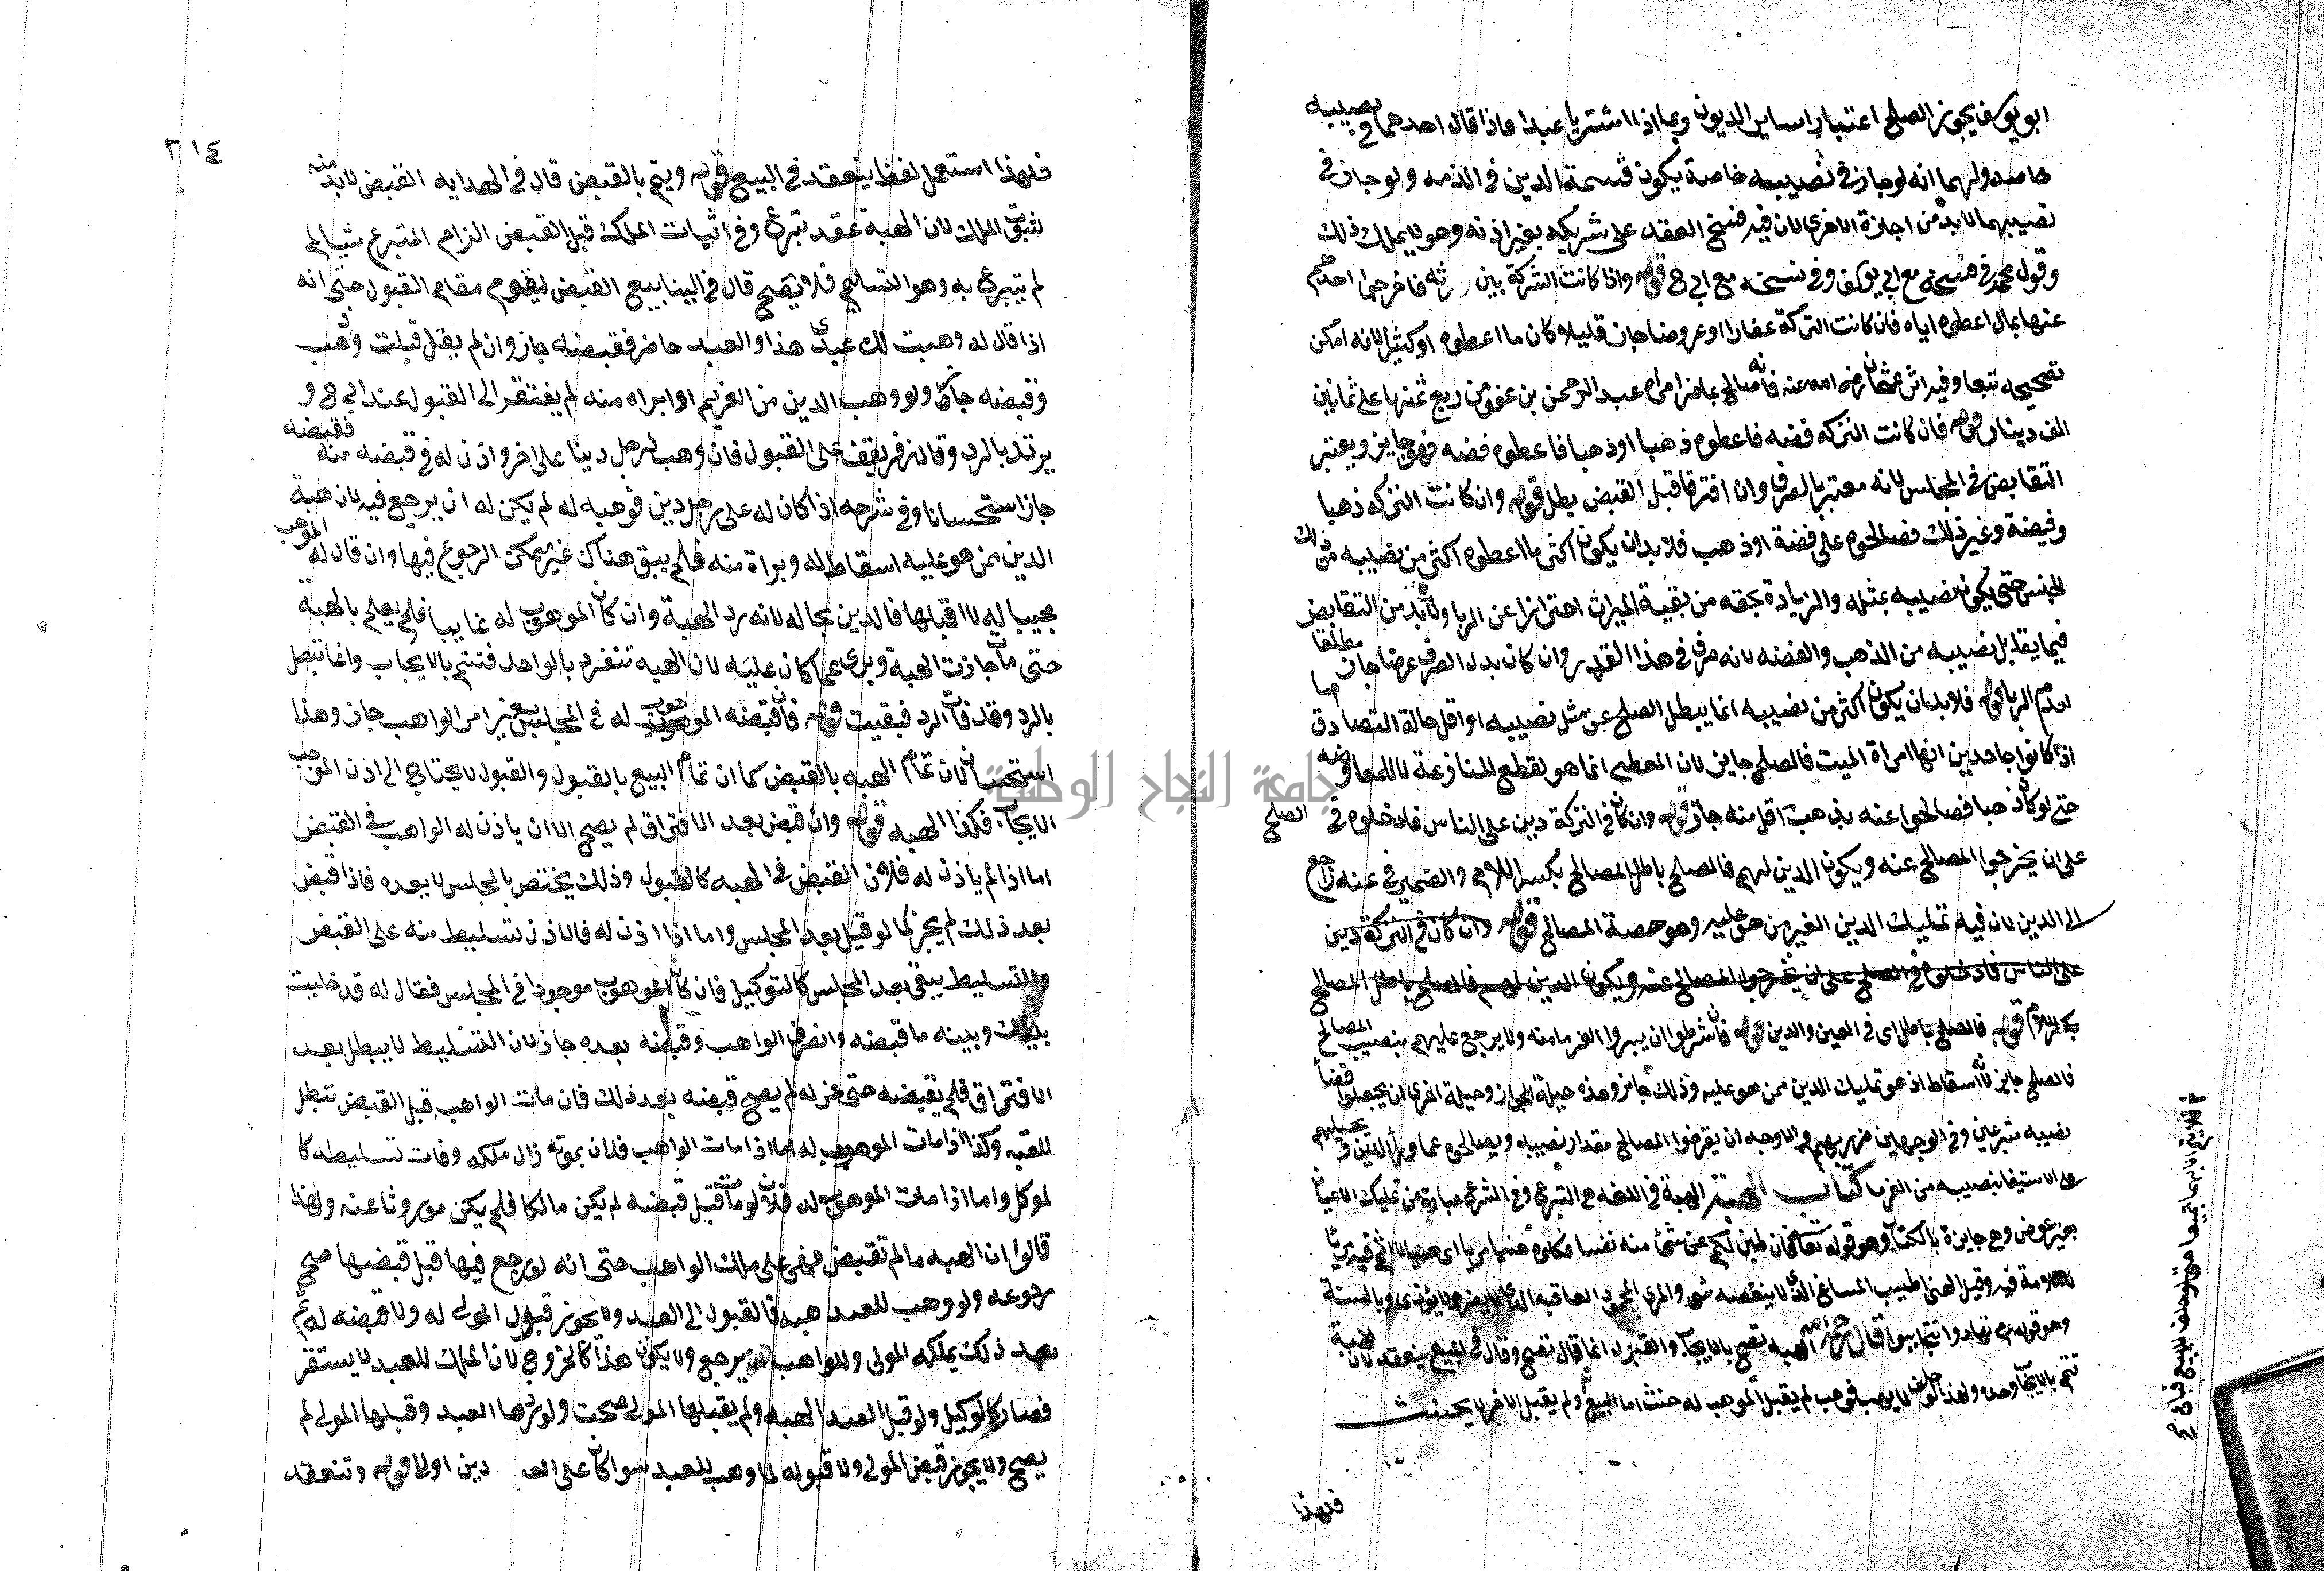 ابو يوسف يجوز الصلح اعتبارا بساير الديون وبما اذا اشتريا عبدا فاذا قال احدهما في نصيبه
خاصه ولهما انه لو جاز في نصيبه خاصة يكون قسمة الدين في الذمه ولو جاز في
نصيبهما لابد من اجازة الاخر لان فيه فسخ العقد على شريكه بغير اذنه وهو لا يملك ذلك
وقول محمد في نسخه مع ابي يوسف وفي نسخه مع ابي ح قوله واذا كانت الشركة بين رثه فاخرجوا احدهم
عنها بمال اعطوه اياه فان كانت التركة عقارا او عروضا جاز قليلا كان ما اعطوه او كثيرا لانه امكن
تصحيحه تبعا وفيه اثر عثمان رضه الله عنه فانه صالح تماضر امراه عبد الرحمن بن عوف من ربع ثمنها على ثمانين
الف دينار قوله فان كانت التركه فضه فاعطوه ذهبا او ذهبا فاعطوه فضه فهو جايز ويعتبر
التقابض في المجلس لانه معتبر بالصرف وان افترقا قبل القبض بطل قوله وان كانت التركه ذهبا
وفضة وغير ذلك فصالحوه على فضة او ذهب فلا بد ان يكون ما اعطوه اكثر من نصيبه من ذلك
الجنس حتى يكون نصيبه بمثله والزيادة بحقه من بقية الميراث احترازا عن الربا ولابد من التقابض
فيما يقابل نصيبه من الذهب والفضه لانه صرف في هذا القدر وان كان بدل الصرف عرضا جاز مطلقا
لعدم الربا قوله فلا بد ان يكون اكثر من نصيبه انما يبطل الصلح عن مثل نصيبه او اقل حالة التصادق اما
اذا كانوا جاحدين انها امراة الميت فالصلح جايز لان المعطى انما هو لقطع المنازعة لا للمعاوضه
حتى لو كان ذهبا فصالحوا عنه بذهب اقل منه جاز قوله وان كان في التركة دين على الناس فادخلوه في الصلح
على ان يخرجوا المصالح عنه ويكون الدين لهم فالصلح باطل المصالح بكسر اللام والضمير في عنه راجع
الى الدين لان فيه تمليك الدين الغير من هو عليه وهو حصة المصالح قوله وان كان في التركة دين
على الناس فادخلوه في الصلح على ان يخرجوا المصالح عنه ويكون الدين لهم فالصلح باطل المصالح
بكسر اللام قوله فالصلح باطل اى في العين والدين قوله فان شرطوا ان يبروا الغرما منه ولا يرجع عليهم بنصيب المصالح
فالصلح جايز لانه اسقاط اذ هو تمليك الدين ممن هو عليه وذلك جايز وهذه حيلة الجواز وحيلة اخرى ان يجعلوا قضا
نصيبه متبرعين وفي الوجهين ضرر بهم والاوجه ان يقرضوا المصالح مقدار نصيبه ويصالحوه عما ورا الدين ويحيلهم
على الاستيفا بنصيبه من الغرما كتاب الهبة الهبة في اللغه هي التبرع وفي الشرع عبارة عن تمليك الاعيان
بغير عوض وهي جايزة بالكتاب وهو قوله تعالى فان طبن لكم عن شى منه نفسا فكلوه هنيا مريا اى هنيا لا اثم فيه مريا
لا ملامة فيه وقيل الهنى الطيب المساغ الذى لا ينغصه شى والمرى المحمود العاقبه الذى لا يضر ولا يؤذى وبالسنة
وهو قوله عم تهادوا تحابوا قال الهبه تصح بالايجاب والقبول انما قال تصح وقال في البيع ينعقد لان الهبة
تتم بالايجاب وحده ولهذا لو حلف لا يهب فوهب لم يقبل الموهب له حنث اما البيع ولم يقبل الاخر لا يحنث
فلهذا
٢١٤
فلهذا استعمل لفظ ينعقد في البيع قوله ويتم بالقبض قال في الهدايه القبض لابد منه
لثبوت الملك لان الهبة عقد تبرع وفي اثبات الملك قبل القبض الزام المتبرع شيا لم
لم يتبرع به وهو التسليم فلا يصح قال في الينابيع القبض يقوم مقام القبول حتى انه
اذا قال له وهبت لك عبدى هذا والعبد حاضر فقبضه جاز وان لم يقل قبلت وهب
وقبضه جاز ولو وهب الدين من الغريم او ابراه منه لم يفتقر الى القبول عند ابي ح و
يرتد بالرد وقال زفر يقف على القبول فان وهب لرجل دينا على اخر واذن له في قبضه منه فقبضه
جاز استحسانا وفي شرحه اذا كان له على رجل دين فوهبه له لم يكن له ان يرجع فيه لان هبة
الدين ممن هو عليه اسقاط له وبراة منه فلم يبق هناك عين يمكن الرجوع فيها وان قال له الموهب
مجيبا له لا اقبلها فالدين بحاله لانه رد الهبة وان كان الموهوب له غايبا فلم يعلم بالهبة
حتى مات جازت الهبة وبرى عما كان عليه لان الهبه تنفرد بالواحد فتتم بالايجاب وانما تبطل
بالرد وقد فات الرد فبقيت قوله فان قبضه الموهوب له في المجلس بغير امر الواهب جاز وهذا
استحسان لان تمام الهبه بالقبض كما ان تمام البيع بالقبول والقبول لا يحتاج الى اذن الموجب
الايجاب فكذا الهبه قوله وان قبض بعد الافتراق لم يصح الا ان ياذن له الواهب في القبض
اما اذا لم ياذن له فلان القبض في الهبه كالقبول وذلك يختص بالمجلس لا بعده فاذا قبض
بعد ذلك لم يجز كما لو قبل بعد المجلس واما اذا اذن له فالاذن تسليط منه على القبض
والتسليط يبقى بعد المجلس كالتوكيل فان كان الموهوب موجودا في المجلس فقال له قد خليت
بينك وبينه ما قبضه وانصرف الواهب وقبضه بعده جاز لان التسليط لا يبطل بعد
الافتراق فلم يقبضه حتى عزله لم يصح قبضه بعد ذلك فان مات الواهب قبل القبض تبطل
للهبه وكذا اذا مات الموهوب له اما اذا مات الواهب فلان بموته زال ملكه وفات تسليطه كا
لموكل واما اذا مات الموهوب له فلانه لو مات قبل قبضه لم يكن مالكا فلم يكن موروثا عنه ولهذا
قالوا ان الهبه ما لم تقبض فهي على ملك الواهب حتى انه لو رجع فيها قبل قبضها صح
رجوعه ولو وهب للعبد هبه فالقبول الى العبد ولا يجوز قبول المولى له ولا قبضه له ثم
بعد ذلك يملكه المولى وللواهب ان يرجع ولا يكون هذا كالخروج لان الملك للعبد لا يستقر
فصار كالوكيل ولو قبل العبد الهبه ولم يقبلها المولى صحت ولو ردها العبد وقبلها المولى لم
يصح ولا يجوز قبض المولى ولا قبوله لما وهب للعبد سوا كان على العـ دين او لا قوله وتنعقد
جامعة النجاح الوطنية